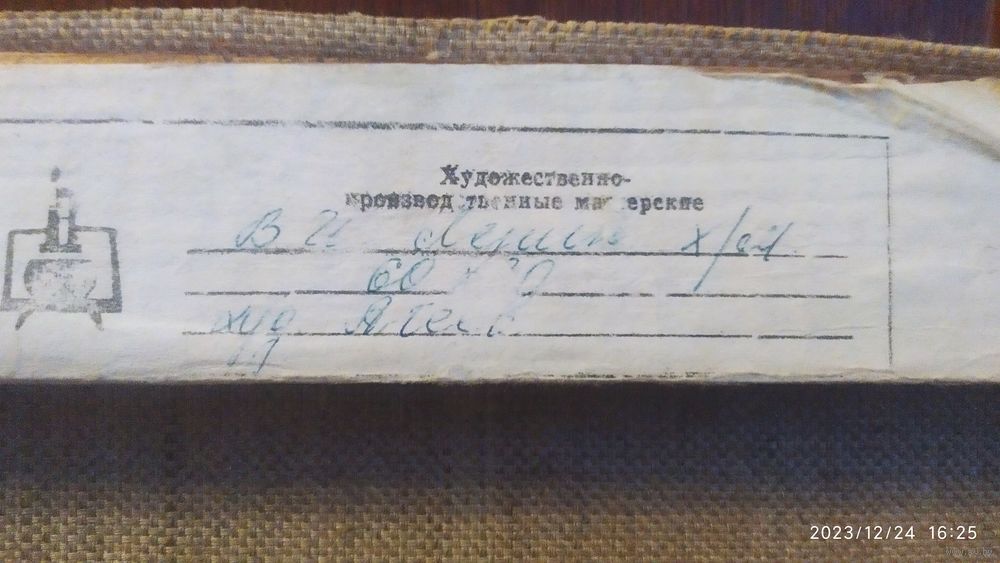 Художественно-
производственные мастерские
В И Ленин х/м
60 х
худ
2023/12/24 16:25